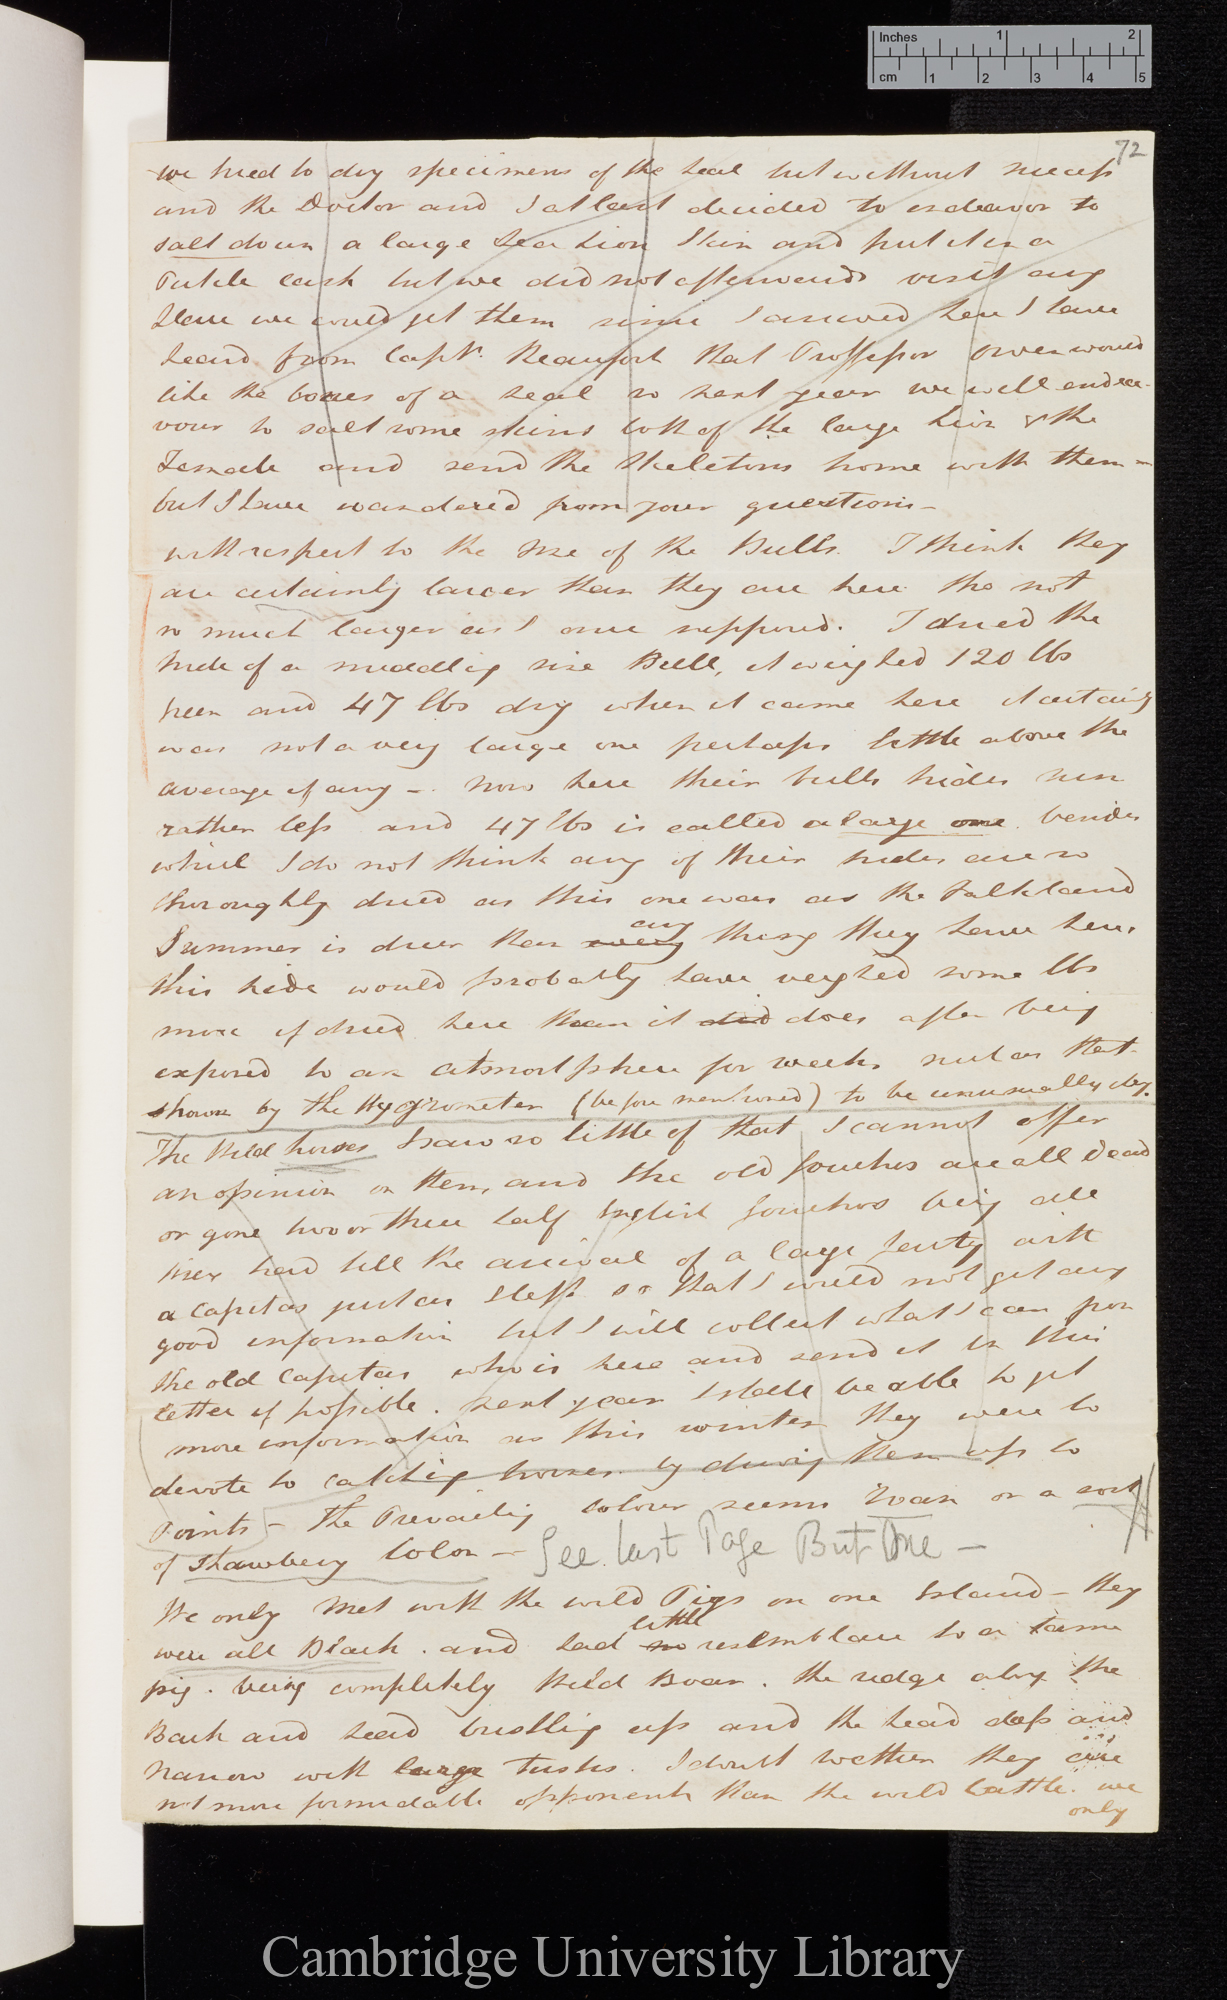 Inches 1 2
cm 1 2 3 4 5
72
we tried to dry specimens of the seal but without success
and the Doctor and I at last decided to endeavor to
salt down a large Sea Lion Skin and put it in a
Tight cask but we did not afterwards visit any
place we could get them since I arrived here I have
heard from Capt. Beaufort that Proffessor Owen would
like the bones of a seal so next year we will endea-
vour to salt some skins both of the large Lion & the
Female and send the Skeletons home with them —
but I have wandered from your questions —
with respect to the size of the Bulls. I think they
are certainly larger than they are here tho not
so much larger as I once supposed. I dried the
hide of a middling size Bull, it weighed 120 lbs
green and 47 lbs dry when it came here it certainly
was not a very large one perhaps little above the
average if any —. Now here their bulls hides run
rather less and 47 lbs is called a large one besides
which I do not think any of their hides are so
thoroughly dried as this one was as the Falkland
any
Summer is drier than every thing they have here.
this hide would probably have weighed some lbs
more if dried here than it did does after being
exposed to an atmosphere for weeks such as that
shown by the Hygrometer (before mentioned) to be unusually dry.
The Wild horses I saw so little of that I cannot offer
an opinion on them, and the old Gouchos are all dead
or gone two or three half English Gouchos being all
they had till the arrival of a large party with
a Capitas just as I left so that I could not get any
good information but I will collect what I can from
the old Capitas who is here and send it in this
letter if possible. Next year I shall be able to get
more information as this winter they were to
devote to catching horses by driving them up to
Points — The Prevailing colour seems Roan or a sort
of Strawberry Color — See last Page But One —
We only met with the wild Pigs on one Island — they
little
were all Black. and had no resemblance to a tame
pig. being completely Wild Boar. the ridge along the
Back and head bristling up and the head deep and
narrow with large tusks. I doubt wether they are
not more formidable opponents than the wild Cattle. we
only
Cambridge University Library